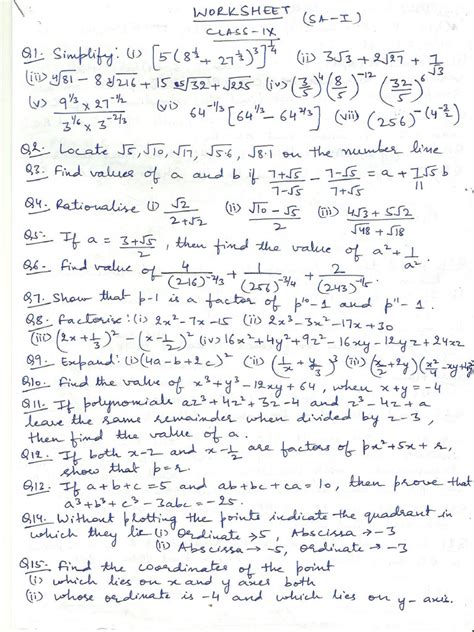 WORKSHEET (SA-I)
CLASS-IX
Q1. Simplify: (i) [5(8^1/3 + 27^1/3)^3]^1/4 (ii) 3√3 + 2√27 + 7/√3
(iii) ∜81 - 8 ∛216 + 15 ⁵√32 + √225 (iv) (3/5)^4 (8/5)^-12 (32/5)^6
(v) 9^1/3 × 27^-1/2 / 3^1/6 × 3^-2/3 (vi) 64^-1/3 [64^1/3 - 64^2/3] (vii) (256)^-(4^-3/2)
Q2. Locate √5, √10, √17, √5.6, √8.1 on the number line
Q3. Find values of a and b if 7+√5/7-√5 - 7-√5/7+√5 = a + 7/11 √5 b
Q4. Rationalise (i) √2/2+√2 (ii) √10-√5/2 (iii) 4√3+5√2/√48+√18
Q5. If a = 3+√5/2, then find the value of a² + 1/a².
Q6. Find value of 4/(216)^-2/3 + 1/(256)^-3/4 + 2/(243)^-1/5
Q7. Show that p-1 is a factor of p^10 - 1 and p^11 - 1.
Q8. Factorise: (i) 2x²-7x-15 (ii) 2x³-3x²-17x+30
(iii) (2x + 1/3)² - (x - 1/2)² (iv) 16x²+4y²+9z²-16xy-12yz+24xz
Q9. Expand: (i) (4a-b+2c)² (ii) (1/x + y/3)³ (iii) (x/2+2y)(x²/4-xy+4y²)
Q10. Find the value of x³+y³-12xy+64, when x+y=-4
Q11. If polynomials az³+4z²+3z-4 and z³-4z+a
leave the same remainder when divided by z-3,
then find the value of a.
Q12. If both x-2 and x-1/2 are factors of px²+5x+r,
show that p=r.
Q13. If a+b+c=5 and ab+bc+ca=10, then prove that
a³+b³+c³-3abc=-25.
Q14. Without plotting the points indicate the quadrant in
which they lie (i) Ordinate → 5, Abscissa → -3
(ii) Abscissa → -5, Ordinate → -3
Q15. Find the coordinates of the point
(i) which lies on x and y axes both
(ii) whose ordinate is -4 and which lies on y-axis.